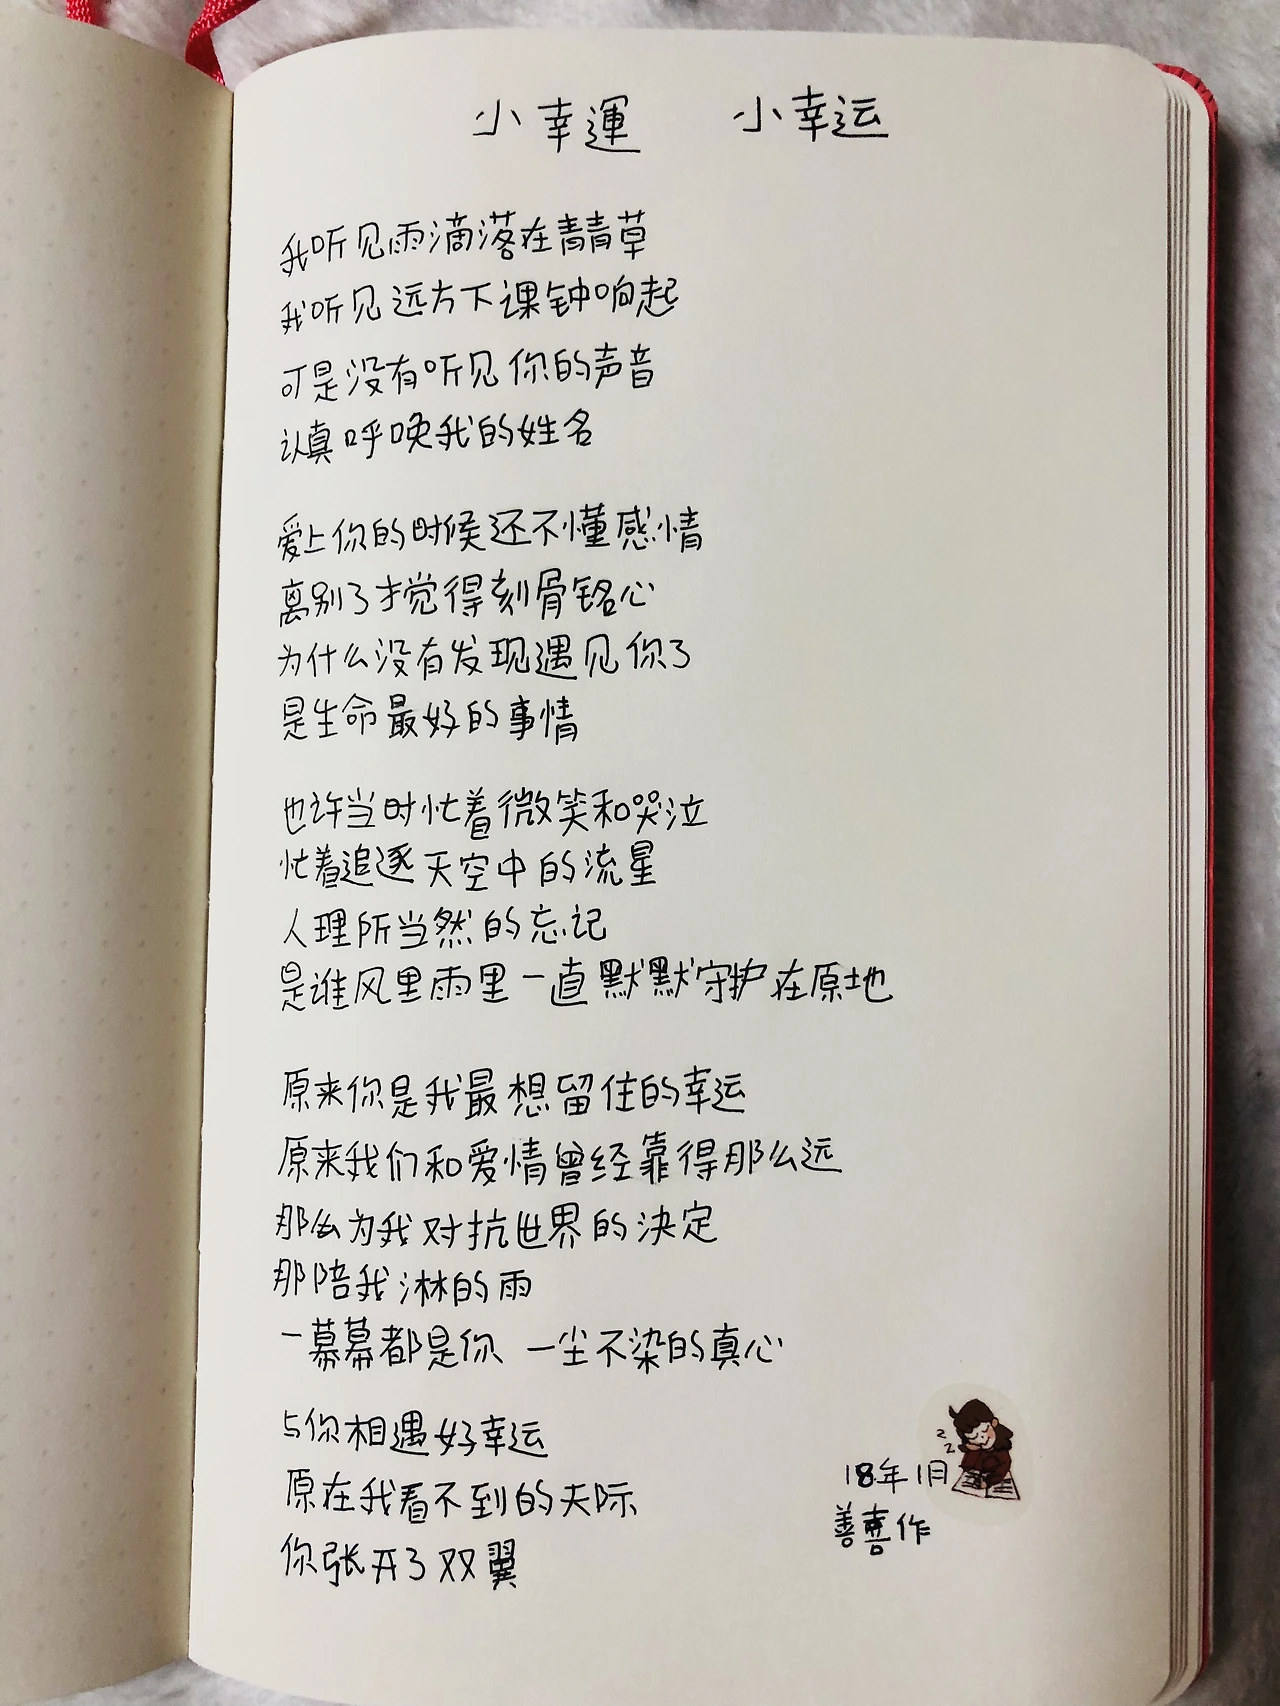 小幸運 小幸运
我听见雨滴落在青青草
我听见远方下课钟响起
可是没有听见你的声音
认真呼唤我的姓名
爱上你的时候还不懂感情
离别了才觉得刻骨铭心
为什么没有发现遇见你了
是生命最好的事情
也许当时忙着微笑和哭泣
忙着追逐天空中的流星
人理所当然的忘记
是谁风里雨里一直默默守护在原地
原来你是我最想留住的幸运
原来我们和爱情曾经靠得那么远
那么为我对抗世界的決定
那陪我淋的雨
一幕幕都是你 一尘不染的真心
与你相遇好幸运
原在我看不到的天际
你张开了双翼
zzz
18年1月
善喜作